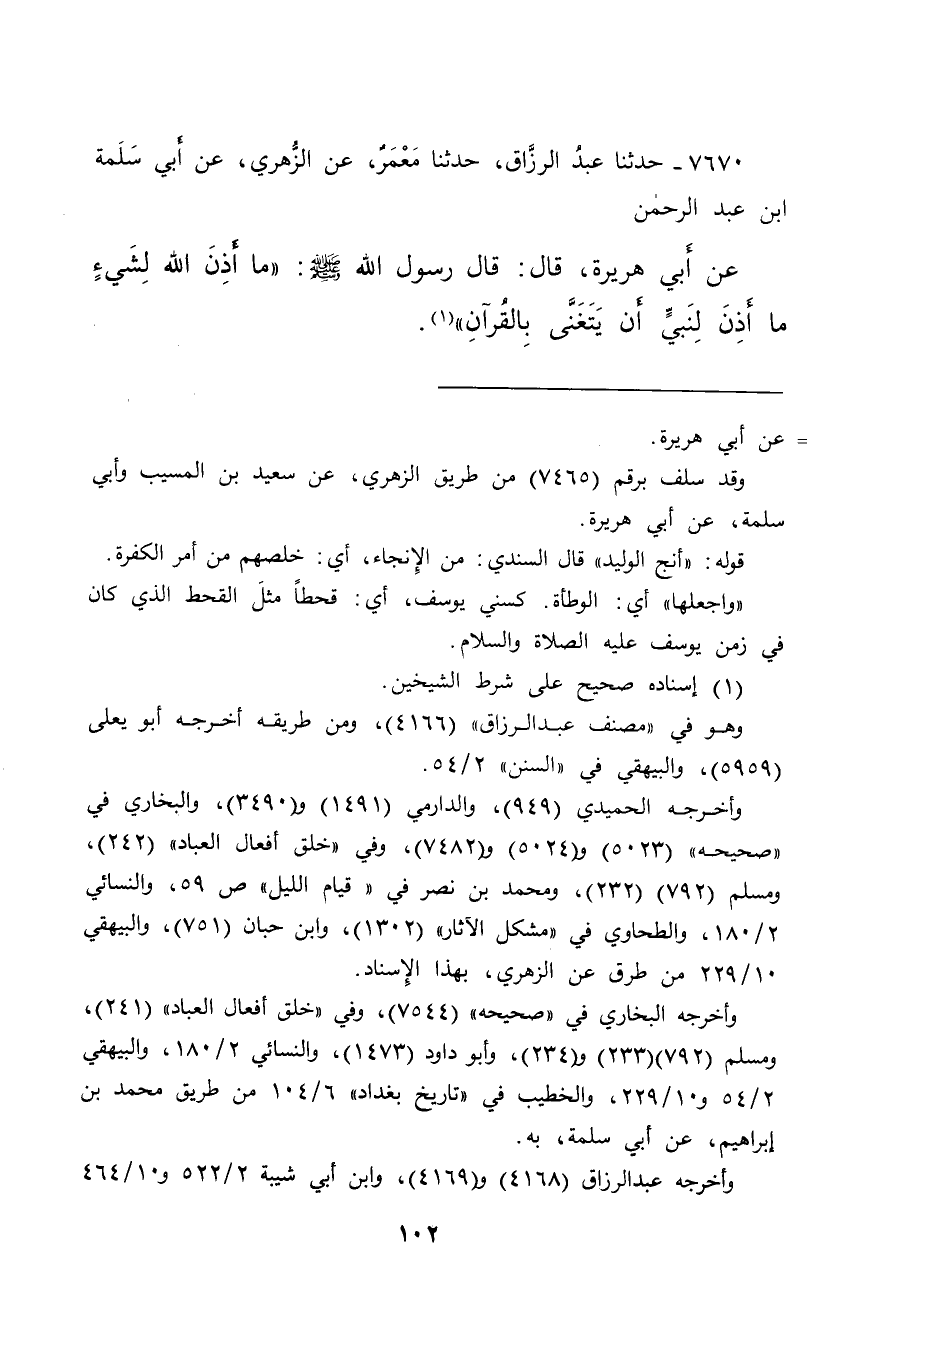 ٧٦٧٠ ـ حدثنا عبدُ الرزَّاق، حدثنا مَعْمَرٌ، عن الزُّهري، عن أَبي سَلَمة
ابن عبد الرحمٰن
عن أَبي هريرة، قال: قال رسول الله ﷺ: «ما أَذِنَ الله لِشَيءٍ
ما أَذِنَ لِنَبيٍّ أَن يَتَغَنَّى بِالقُرآنِ»(١).
= عن أبي هريرة.
وقد سلف برقم (٧٤٦٥) من طريق الزهري، عن سعيد بن المسيب وأبي
سلمة، عن أبي هريرة.
قوله: «أنج الوليد» قال السندي: من الإنجاء، أي: خلصهم من أمر الكفرة.
«واجعلها» أي: الوطأة. كسني يوسف، أي: قحطاً مثلَ القحط الذي كان
في زمن يوسف عليه الصلاة والسلام.
(١) إسناده صحيح على شرط الشيخين.
وهو في «مصنف عبدالرزاق» (٤١٦٦)، ومن طريقه أخرجه أبو يعلى
(٥٩٥٩)، والبيهقي في «السنن» ٥٤/٢.
وأخرجه الحميدي (٩٤٩)، والدارمي (١٤٩١) و(٣٤٩٠)، والبخاري في
«صحيحه» (٥٠٢٣) و(٥٠٢٤) و(٧٤٨٢)، وفي «خلق أفعال العباد» (٢٤٢)،
ومسلم (٧٩٢) (٢٣٢)، ومحمد بن نصر في « قيام الليل» ص ٥٩، والنسائي
١٨٠/٢، والطحاوي في «مشكل الآثار» (١٣٠٢)، وابن حبان (٧٥١)، والبيهقي
٢٢٩/١٠ من طرق عن الزهري، بهذا الإسناد.
وأخرجه البخاري في «صحيحه» (٧٥٤٤)، وفي «خلق أفعال العباد» (٢٤١)،
ومسلم (٧٩٢)(٢٣٣) و(٢٣٤)، وأبو داود (١٤٧٣)، والنسائي ١٨٠/٢، والبيهقي
٥٤/٢ و٢٢٩/١٠، والخطيب في «تاريخ بغداد» ١٠٤/٦ من طريق محمد بن
إبراهيم، عن أبي سلمة، به.
وأخرجه عبدالرزاق (٤١٦٨) و(٤١٦٩)، وابن أبي شيبة ٥٢٢/٢ و٤٦٤/١٠
١٠٢